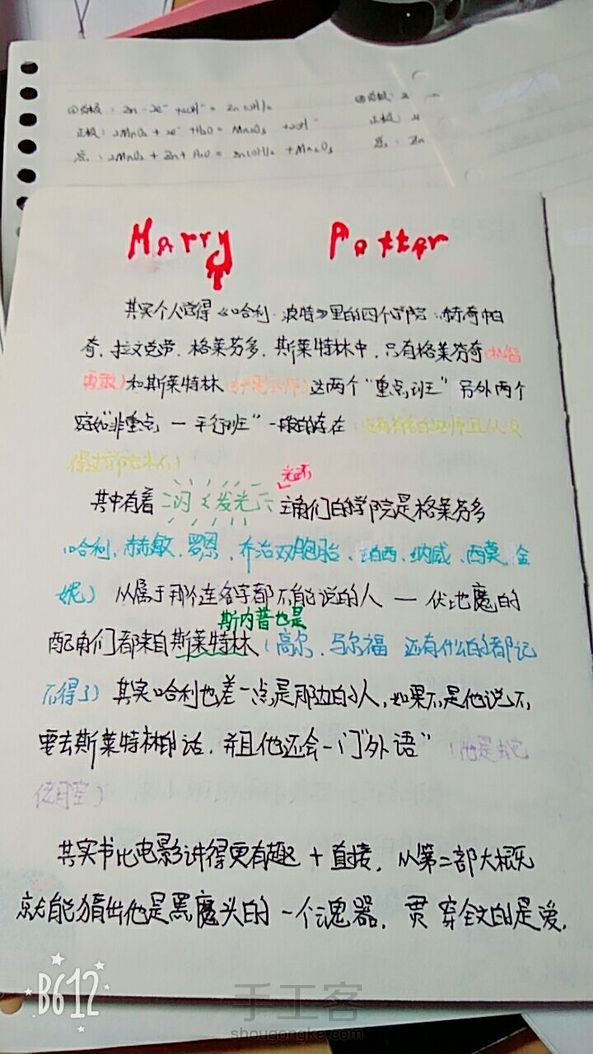 负极：Zn - 2e⁻ + 2OH⁻ = Zn(OH)₂
正极：2MnO₂ + 2e⁻ + H₂O = Mn₂O₃ + 2OH⁻
总：2MnO₂ + Zn + H₂O = Zn(OH)₂ + Mn₂O₃
负极：Z
正极：
总：Zn
Harry Potter
其实个人觉得《哈利·波特》里的四个学院：赫奇帕
奇、拉文克劳、格莱芬多、斯莱特林中，只有格莱芬奇
勇敢）和斯莱特林 这两个“重点班”另外两个
“非重点 — 平行班”一般的存在
光环
其中有着 闪闪发光 主角们的学院是格莱芬多
（哈利、赫敏、罗恩、乔治双胞胎、珀西、纳威、西莫、金
妮）从属于那个连名字都不能说的人 — 伏地魔的
斯内普也是
配角们都来自斯莱特林（高尔、马尔福 还有什么的都记
不得了）其实哈利也差一点是那边的人，如果不是他说不
要去斯莱特林的话，并且他还会一门“外语”（他是蛇
佬腔）
其实书比电影讲得更有趣 + 直接，从第二部大概
就能猜出他是黑魔头的一个魂器，贯穿全文的是爱.
B612
手工客
shougongke.com